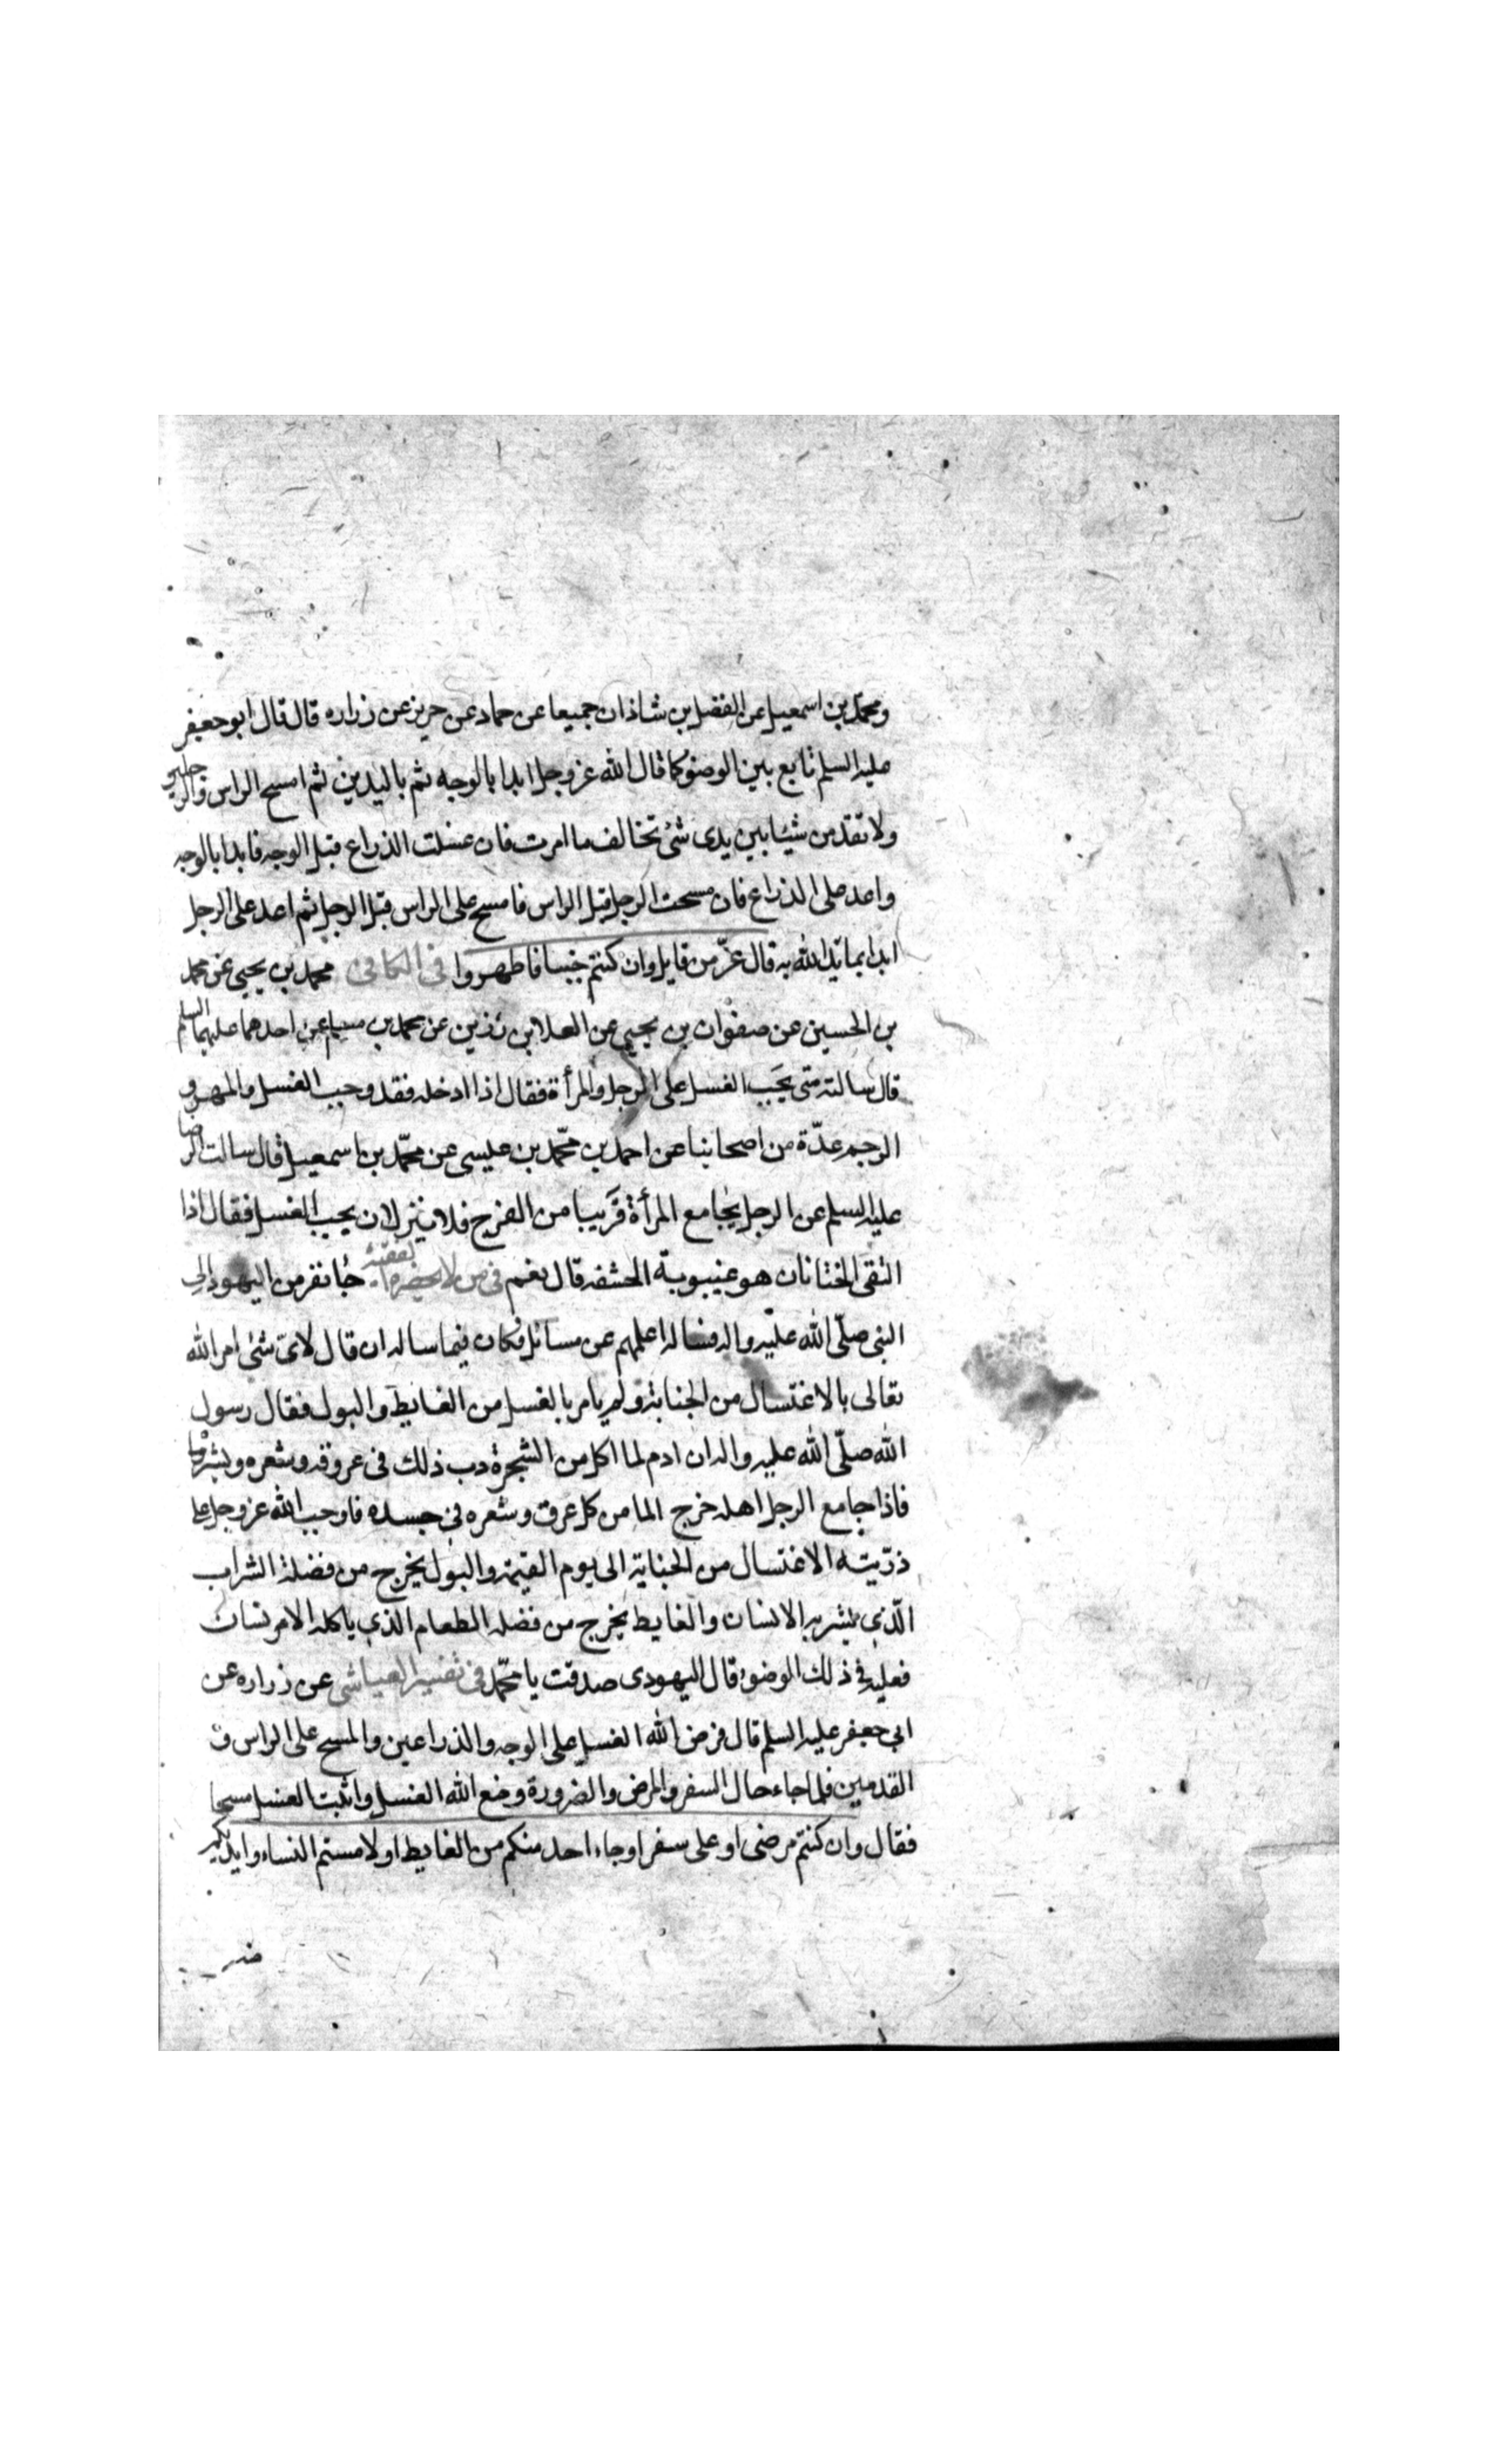 ومحمد بن اسمعيل عن الفضل بن شاذان جميعا عن حماد عن حريز عن زراره قال قال ابو جعفر
عليه السلم تابع بين الوضوء كما قال الله عز وجل ابدا بالوجه ثم باليدين ثم امسح الراس والرجلين
ولا تقدمن شيئا بين يدى شئ تخالف ما امرت فان غسلت الذراع قبل الوجه فابدا بالوجه
واعد على الذراع فان مسحت الرجل قبل الراس فامسح على الراس قبل الرجل ثم اعد على الرجل
ابدا بما بدا الله به قال عزّ من قايل وان كنتم جنبا فاطهروا فى الكافى محمد بن يحيى عن محمد
بن الحسين عن صفوان بن يحيى عن العلا بن رزين عن محمد بن مسلم عن احدهما عليهما السلم
قال سالته متى يجب الغسل على الرجل والمرأة فقال اذا ادخله فقد وجب الغسل والمهر و
الرجم عدّة من اصحابنا عن احمد بن محمّد بن عيسى عن محمّد بن اسمعيل قال سالت الرضا
عليه السلم عن الرجل يجامع المرأة قريبا من الفرج فلا ينزلان يجب الغسل فقال اذا
التقى الختانان هو غيبوبة الحشفه قال نعم فى من لا يحضره الفقيه جا نفر من اليهود الى
النبى صلّى الله عليه واله فساله اعلمهم عن مسائل فكان فيما ساله ان قال لاىّ شئ امر الله
تعالى بالاغتسال من الجنابة ولم يامر بالغسل من الغايط والبول فقال رسول
الله صلّى الله عليه واله ان ادم لما اكل من الشجرة دب ذلك فى عروقه وشعره وبشره
فاذا جامع الرجل اهله خرج الما من كل عرق وشعره فى جسده فاوجب الله عز وجل على
ذرّيته الاغتسال من الجنابة الى يوم القيمة والبول يخرج من فضلة الشراب
الّذى يشربه الانسان والغايط يخرج من فضله الطعام الذى ياكله الانسان
فعليه فى ذلك الوضوء قال اليهودى صدقت يا محمّد فى تفسير العياشى عن زراره عن
ابى جعفر عليه السلم قال فرض الله الغسل على الوجه والذراعين والمسح على الراس و
القدمين فلما جاء حال السفر والمرض والضرورة وضع الله الغسل واثبت الغسل مسحا
فقال وان كنتم مرضى او على سفر او جاء احد منكم من الغايط او لامستم النساء وايديكم